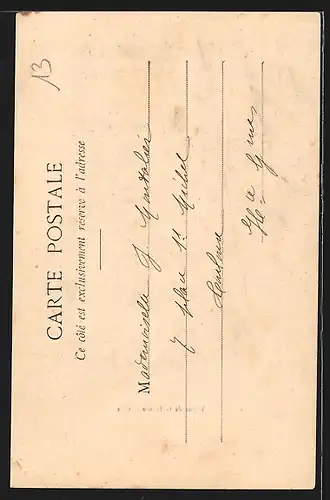 13
CARTE POSTALE
Ce côté est exclusivement réservé à l'adresse
Mademoiselle J. Montalieu
7 place St Michel
Toulouse
Hte G nne